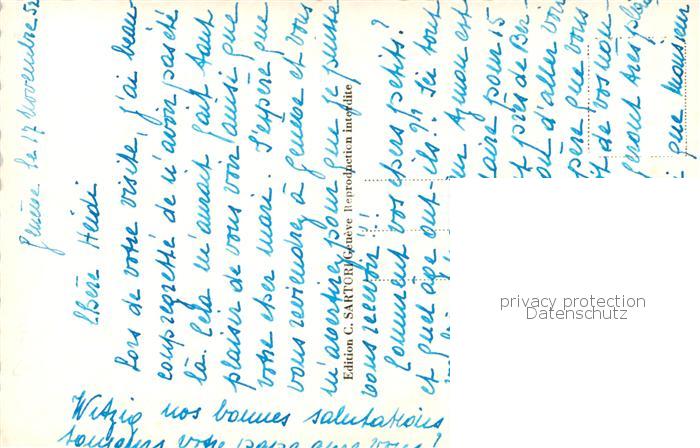 Genève le 17 novembre 52
Chère Heidi
Lors de votre visite, j'ai beau-
coup regretté de n'avoir pas été
là. Cela m'aurait fait tant
plaisir de vous voir ainsi que
votre cher mari. J'espère que
vous reviendrez à Genève et vous
m'avertirez pour que je puisse
vous recevoir!!
Comment vos chers petits?
et quel âge ont-ils? Ici tout
est
aire pour 15
près de Ber-
d'aller vous
père que vous
de vos nou-
feront très plai-
que monsieur
Witzig nos bonnes salutations
toujours votre papa avec vous?
Edition C. SARTORI Genève Reproduction interdite
privacy protection
Datenschutz